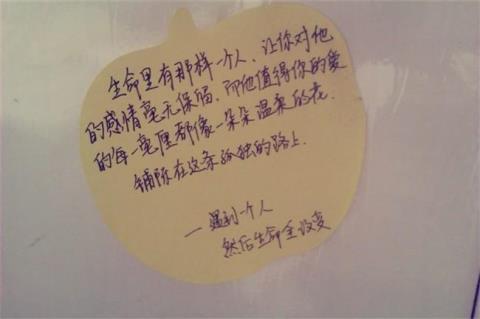 生命里有那样一个人，让你对他
的感情毫无保留，而他值得你的爱
的每一毫厘都像一朵朵温柔的花
铺陈在这条孤独的路上.
—遇到一个人
然后生命全改变